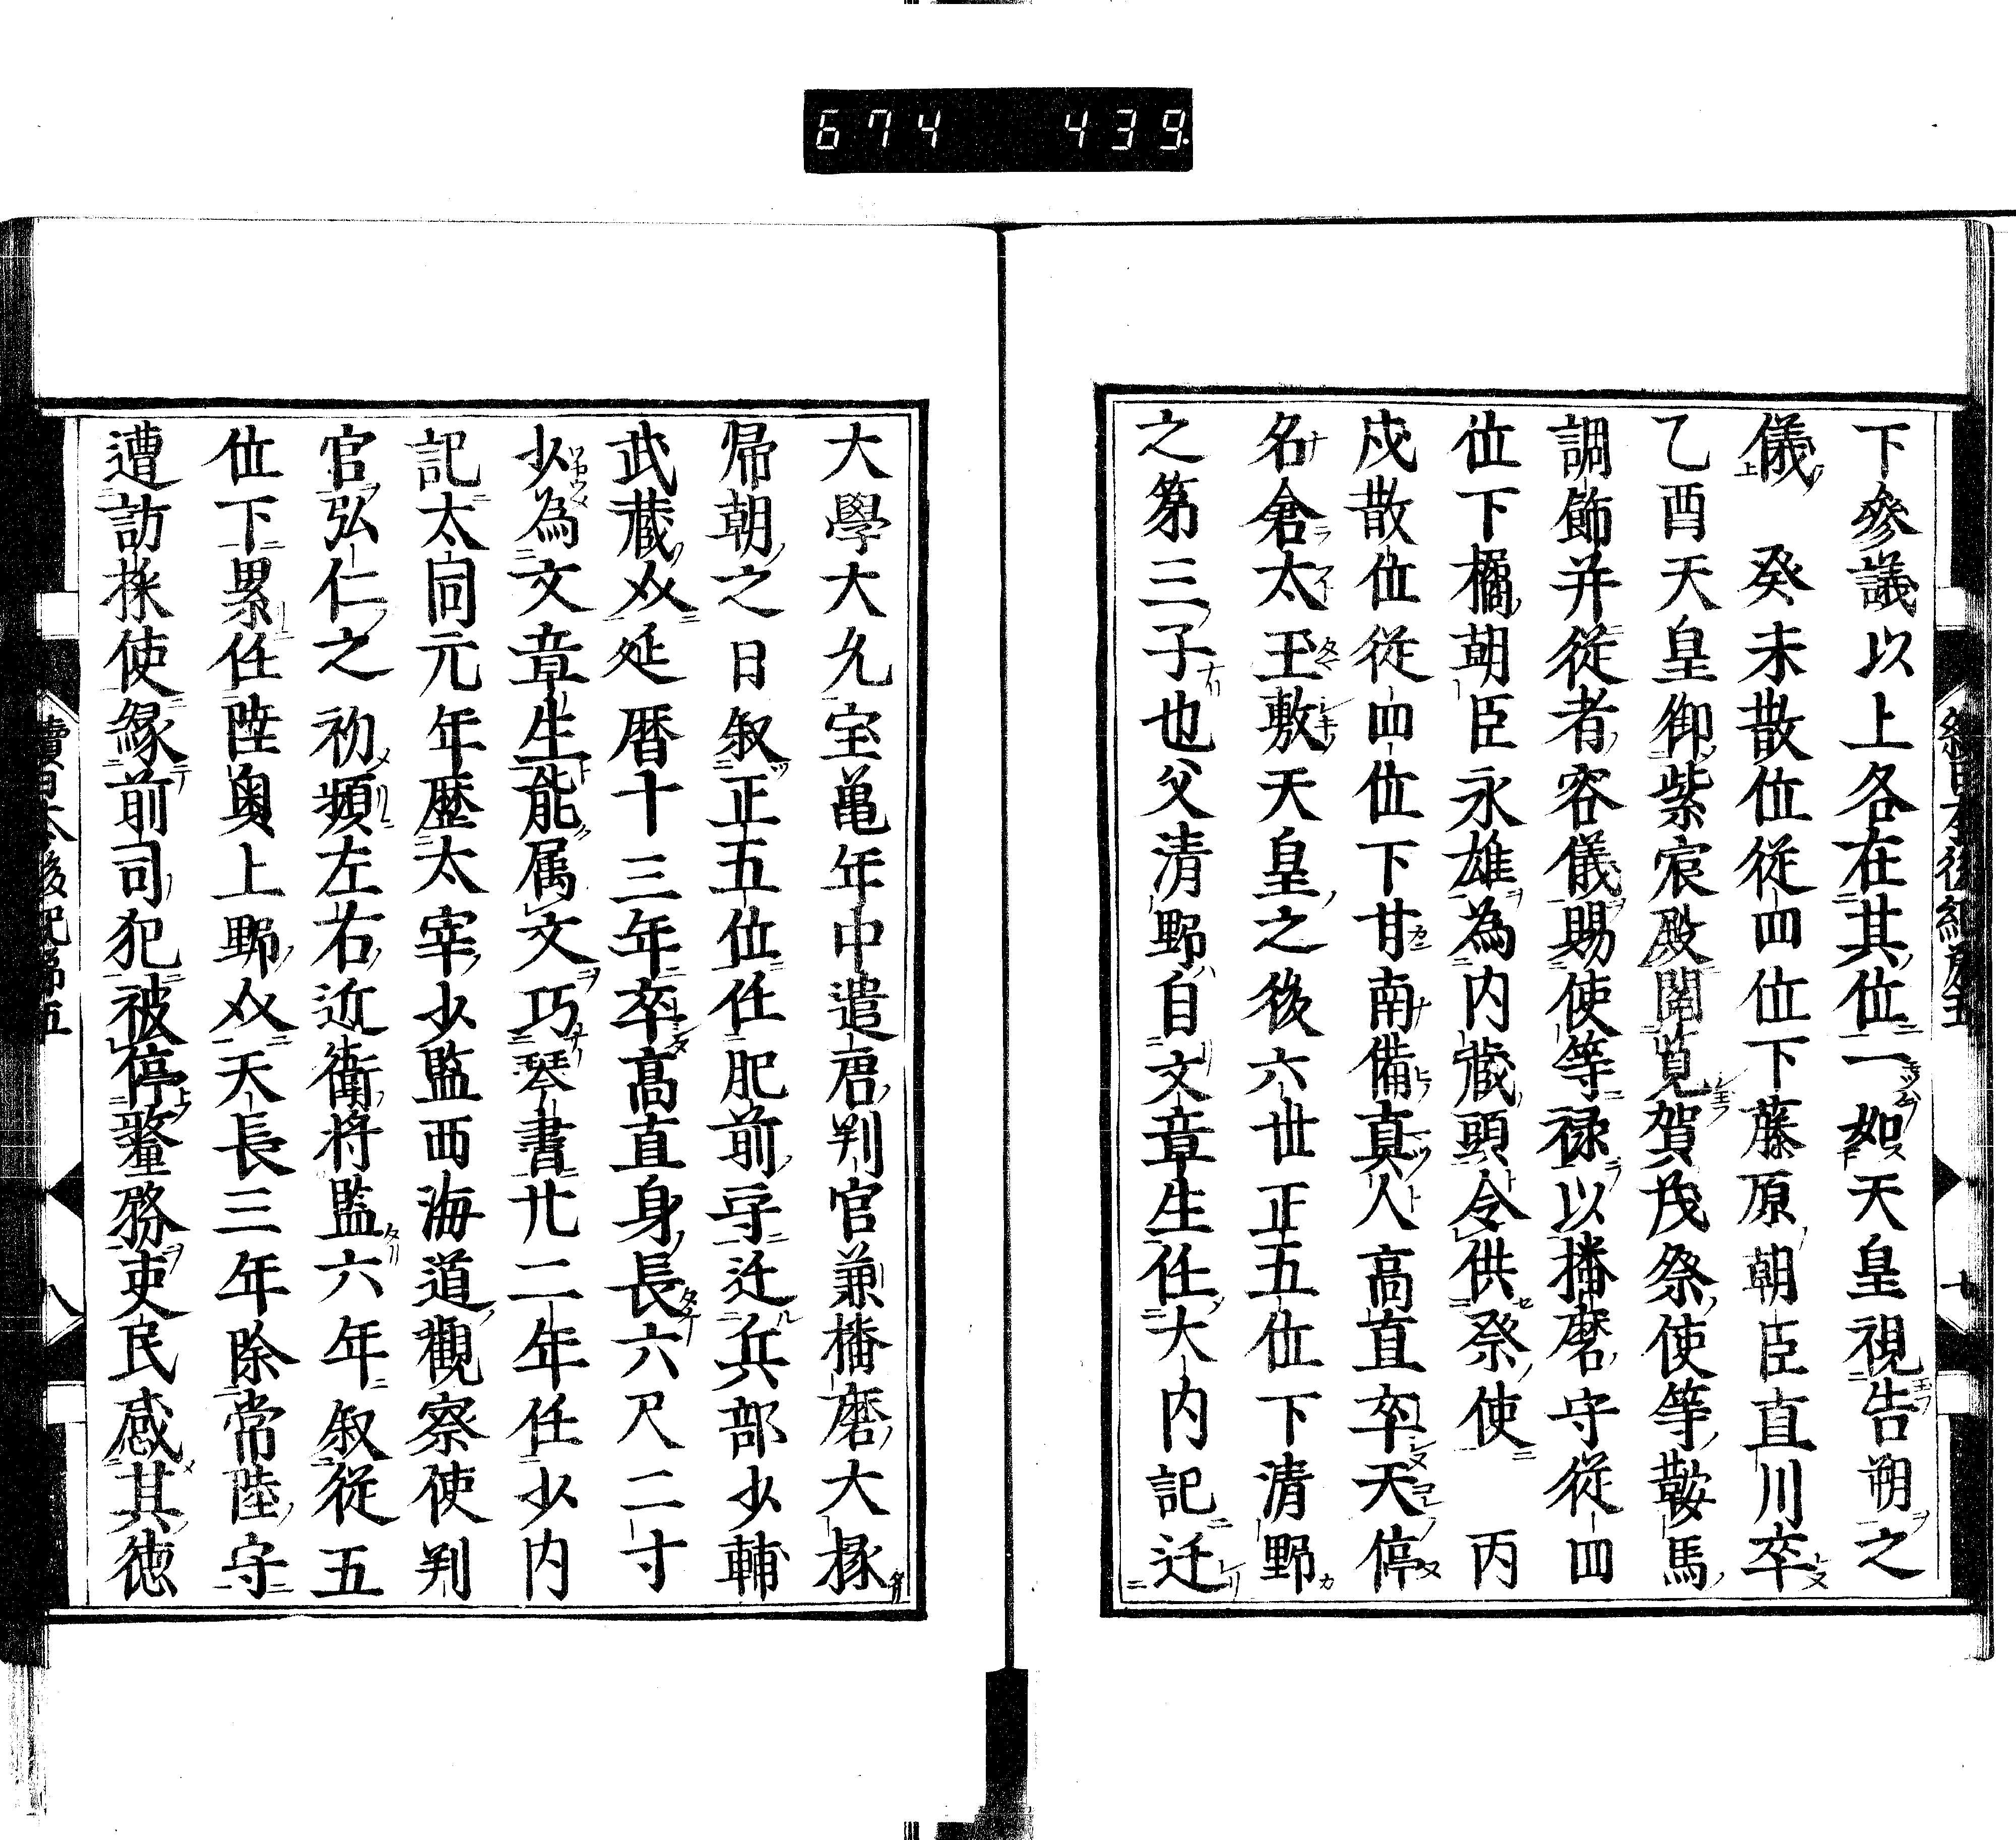 674 439
下參議以上各在其位一如天皇視告朔之
儀 癸未散位從四位下藤原朝臣直川卒
乙酉天皇御紫宸殿閲覧賀茂祭使等鞍馬
調飾并從者容儀賜使等禄以播磨守從四
位下橘朝臣永雄為内蔵頭令供祭使 丙
戌散位從四位下甘南備真人高直卒天停
名倉太王敷天皇之後六世正五位下清野
之第三子也父清野自文章生任大内記迁
大學大允宝亀年中遣唐判官兼播磨大掾
帰朝之日叙正五位任肥前守迁兵部少輔
武蔵以延暦十三年卒高直身長六尺二寸
少為文章生能属文巧琴書廿二年任少内
記大同元年歴太宰少監西海道觀察使判
官弘仁之初頻左右近衛将監六年叙從五
位下累任陸奥上野以天長三年除常陸守
遭訪採使縁前司犯被停釐務吏民感其徳